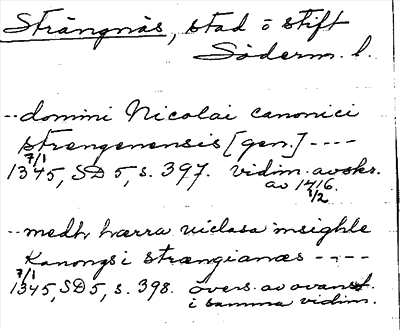 Strängnäs, stad o stift
Söderm. l.
--domini Nicolai canonici
strengenensis [gen.] ----
7/1
1345, SD 5, s. 397. vidim. avskr.
av 1416.
1/2
--medh hærra niclasa insighle
Kanongs i strængianæs ----
7/1
1345, SD 5, s. 398. övers. av ovanst.
i samma vidim.